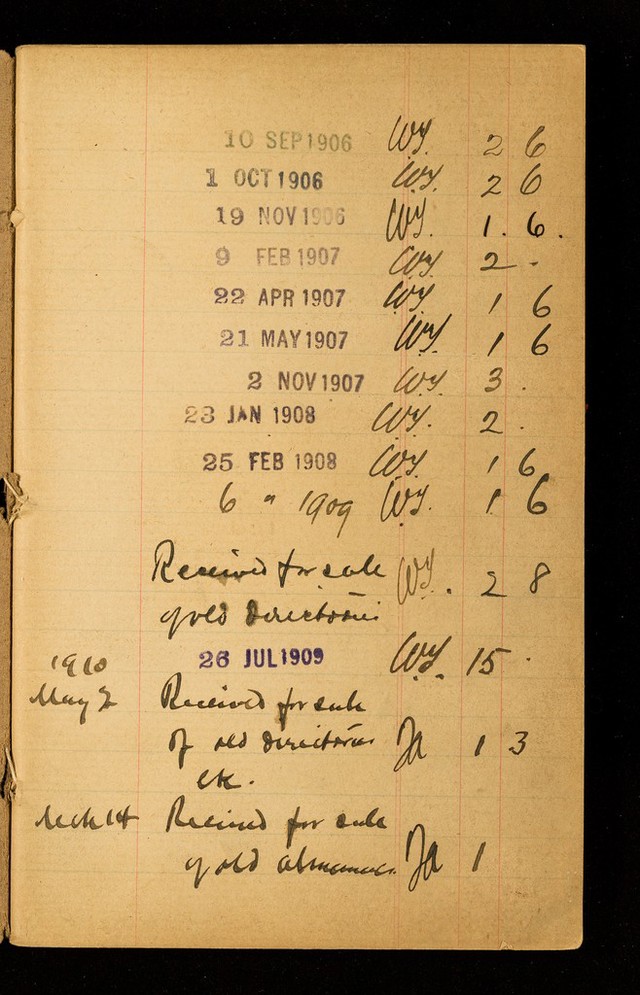 10 SEP 1906 WY. 2 6
1 OCT 1906 WY. 2 6
19 NOV 1906 WY. 1. 6.
9 FEB 1907 WY 2 -
22 APR 1907 WY 1 6
21 MAY 1907 WY 1 6
2 NOV 1907 WY 3 .
23 JAN 1908 WY. 2 .
25 FEB 1908 WY. 1 6
6 " 1909 WY. 1 6
Received for sale WY. 2 8
of old directories
1910 26 JUL 1909 WY. 15 .
May 2 Received for sale
of old directories Ja 1 3
etc.
14 Received for sale
of old almanacs. Ja 1